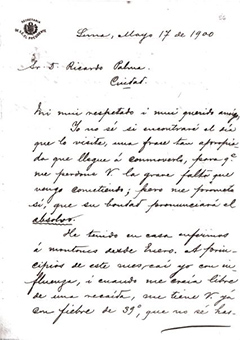 Lima, Mayo 17 de 1900
Sr D. Ricardo Palma.
Ciudad.
Mi muy respetado i muy querido amigo
Yo no sé si encontraré el dia
que lo visite, una frase tan apropia
da que llegue á conmoverlo, para qe
me perdone V la grave falta que
vengo cometiendo; pero me prometo
sí, que su bondad pronunciará el
absolvo.
He tenido en casa enfermos
á montones desde Enero. At prin-
cipios de este mes, caí yo con in-
fluenza, i cuando me creia libre
de una recaida, me tiene V. ya
con fiebre de 39°, que no sé has-